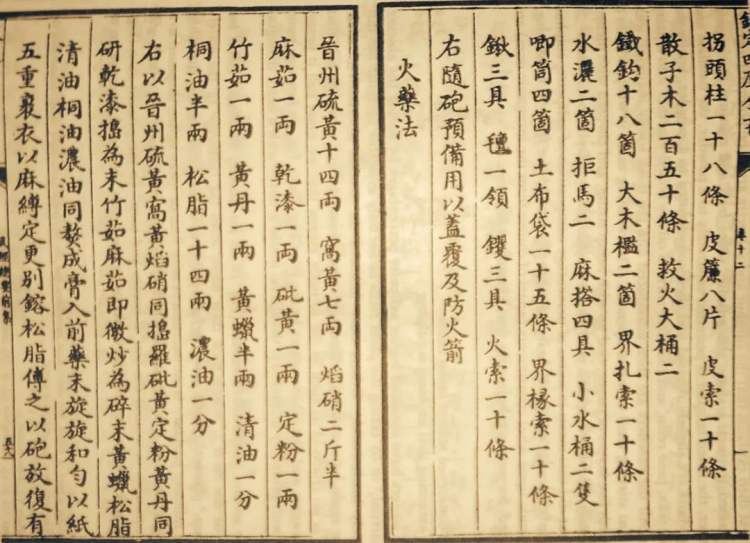 欽定四庫全書
拐頭柱一十八條　皮簾八片　皮索一十條
散子木二百五十條　救火大桶二
鐵鈎十八箇　大木檻二箇　界扎索一十條
水濃二箇　拒馬二　麻搭四具　小水桶二隻
唧筒四箇　土布袋一十五條　界椽索一十條
鍬三具　氊一領　钁三具　火索一十條
右隨砲預備用以蓋覆及防火箭
火藥法
卷十二
晉州硫黄十四兩　窩黄七兩　焰硝二斤半
麻茹一兩　乾漆一兩　砒黄一兩　定粉一兩
竹茹一兩　黄丹一兩　黄蠟半兩　清油一分
桐油半兩　松脂一十四兩　濃油一分
右以晉州硫黄窩黄焰硝同搗羅砒黄定粉黄丹同
研乾漆搗為末竹茹麻茹即微炒為碎末黄蠟松脂
清油桐油濃油同熬成膏入前藥末旋旋和勻以紙
五重裹衣以麻縛定更别鎔松脂傅之以砲放復有